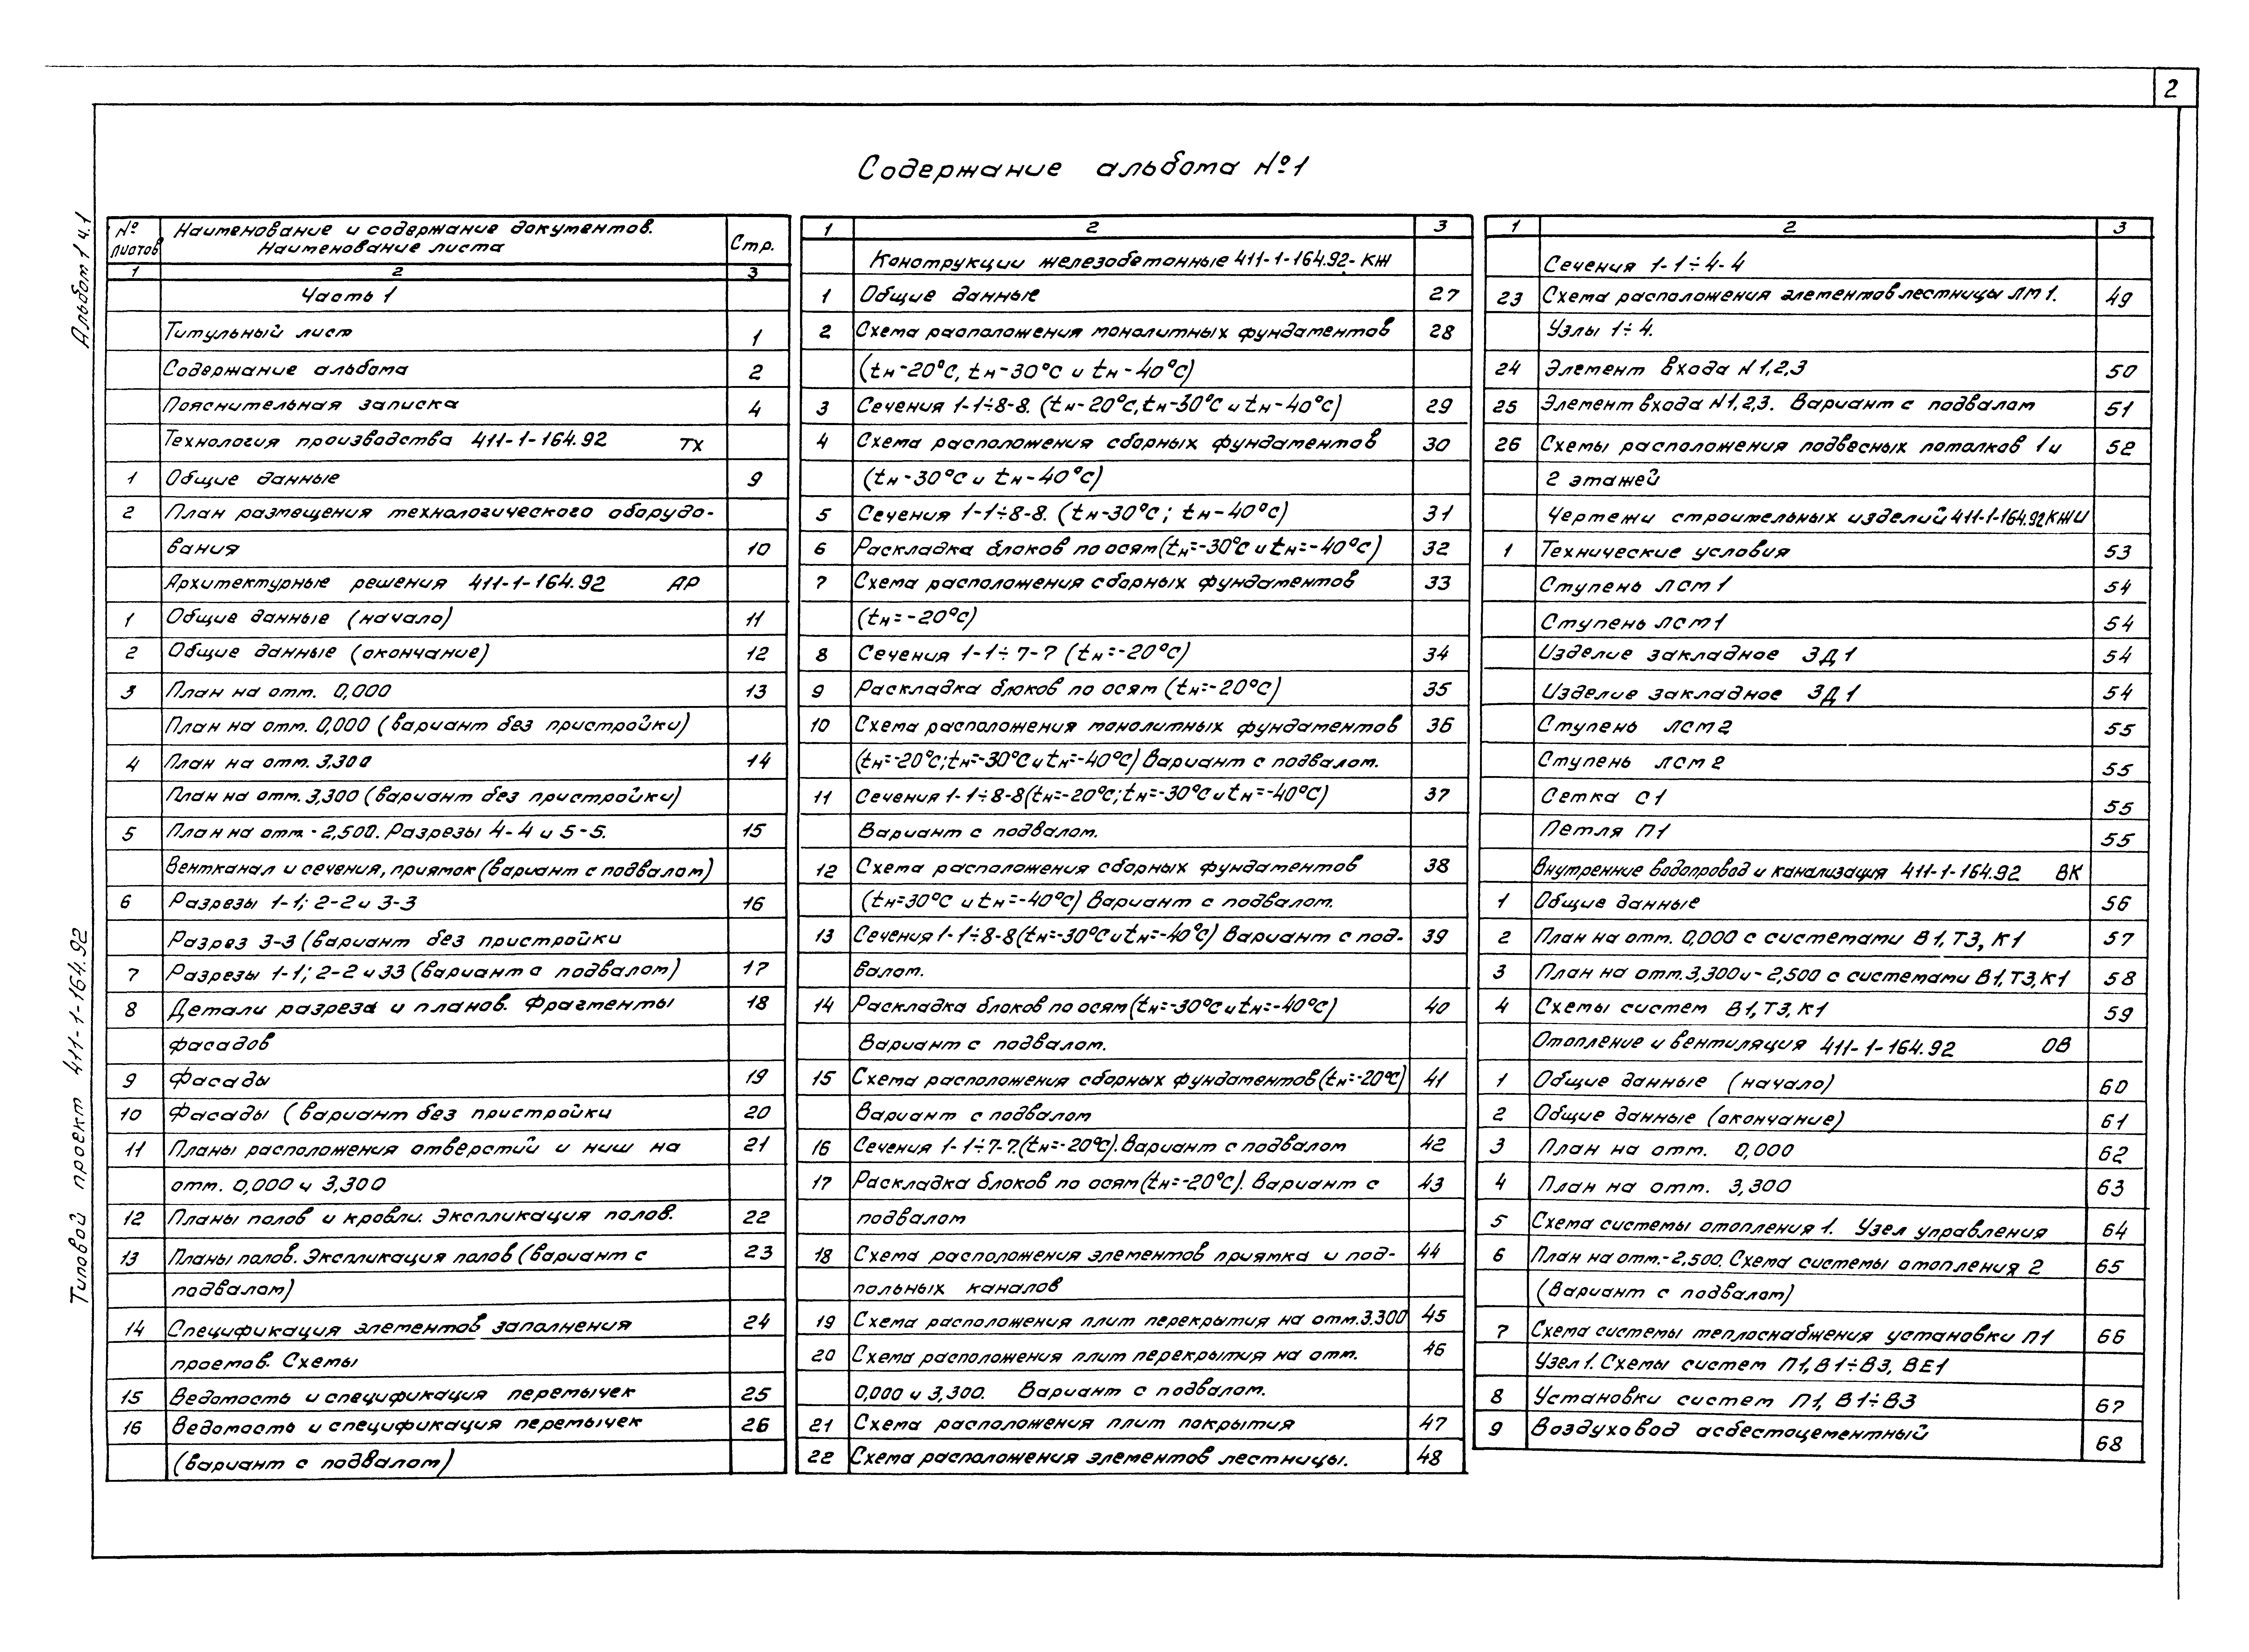 2
Содержание альбома №1
Альбом 1 ч.1
Типовой проект 411-1-164.92
№ листов Наименование и содержание документов. Наименование листа Стр.
1 2 3
Часть 1
Титульный лист 1
Содержание альбома 2
Пояснительная записка 4
Технология производства 411-1-164.92 ТХ
1 Общие данные 9
2 План размещения технологического оборудо-
вания 10
Архитектурные решения 411-1-164.92 АР
1 Общие данные (начало) 11
2 Общие данные (окончание) 12
3 План на отм. 0,000 13
План на отм. 0,000 (вариант без пристройки)
4 План на отм. 3,300 14
План на отм. 3,300 (вариант без пристройки)
5 План на отм. -2,500. Разрезы 4-4 и 5-5. 15
Вентканал и сечения, приямок (вариант с подвалом)
6 Разрезы 1-1; 2-2 и 3-3 16
Разрез 3-3 (вариант без пристройки
7 Разрезы 1-1; 2-2 и 33 (вариант с подвалом) 17
8 Детали разреза и планов. Фрагменты 18
фасадов
9 Фасады 19
10 Фасады (вариант без пристройки 20
11 Планы расположения отверстий и ниш на 21
отм. 0,000 и 3,300
12 Планы полов и кровли. Экспликация полов. 22
13 Планы полов. Экспликация полов (вариант с 23
подвалом)
14 Спецификация элементов заполнения 24
проемов. Схемы
15 Ведомость и спецификация перемычек 25
16 Ведомость и спецификация перемычек 26
(вариант с подвалом)
1 2 3
Конструкции железобетонные 411-1-164.92-КЖ
1 Общие данные 27
2 Схема расположения монолитных фундаментов 28
(tн-20°С, tн-30°С и tн-40°С)
3 Сечения 1-1÷8-8. (tн-20°С, tн-30°С и tн-40°С) 29
4 Схема расположения сборных фундаментов 30
(tн-30°С и tн-40°С)
5 Сечения 1-1÷8-8. (tн-30°С; tн-40°С) 31
6 Раскладка блоков по осям (tн=-30°С и tн=-40°С) 32
7 Схема расположения сборных фундаментов 33
(tн=-20°С)
8 Сечения 1-1÷7-7 (tн=-20°С) 34
9 Раскладка блоков по осям (tн=-20°С) 35
10 Схема расположения монолитных фундаментов 36
(tн=-20°С; tн=-30°С и tн=-40°С) Вариант с подвалом.
11 Сечения 1-1÷8-8 (tн=-20°С; tн=-30°С и tн=-40°С) 37
Вариант с подвалом.
12 Схема расположения сборных фундаментов 38
(tн=30°С и tн=-40°С) Вариант с подвалом.
13 Сечения 1-1÷8-8 (tн=-30°С и tн=-40°С) Вариант с под- 39
валом.
14 Раскладка блоков по осям (tн=-30°С и tн=-40°С) 40
Вариант с подвалом.
15 Схема расположения сборных фундаментов (tн=-20°С) 41
Вариант с подвалом
16 Сечения 1-1÷7-7. (tн=-20°С). Вариант с подвалом 42
17 Раскладка блоков по осям (tн=-20°С). Вариант с 43
подвалом
18 Схема расположения элементов приямка и под- 44
польных каналов
19 Схема расположения плит перекрытия на отм.3.300 45
20 Схема расположения плит перекрытия на отм. 46
0,000 и 3,300. Вариант с подвалом.
21 Схема расположения плит покрытия 47
22 Схема расположения элементов лестницы. 48
1 2 3
Сечения 1-1÷4-4
23 Схема расположения элементов лестницы ЛМ1. 49
Узлы 1÷4.
24 Элемент входа N1,2,3 50
25 Элемент входа N1,2,3. Вариант с подвалом 51
26 Схемы расположения подвесных потолков 1 и 52
2 этажей
Чертежи строительных изделий 411-1-164.92 КЖИ
1 Технические условия 53
Ступень ЛСм1 54
Ступень ЛСм1 54
Изделие закладное ЗД1 54
Изделие закладное ЗД1 54
Ступень ЛСм2 55
Ступень ЛСм2 55
Сетка С1 55
Петля П1 55
Внутренние водопровод и канализация 411-1-164.92 ВК
1 Общие данные 56
2 План на отм. 0,000 с системами В1, Т3, К1 57
3 План на отм. 3,300 и -2,500 с системами В1, Т3, К1 58
4 Схемы систем В1, Т3, К1 59
Отопление и вентиляция 411-1-164.92 ОВ
1 Общие данные (начало) 60
2 Общие данные (окончание) 61
3 План на отм. 0,000 62
4 План на отм. 3,300 63
5 Схема системы отопления 1. Узел управления 64
6 План на отм.-2,500. Схема системы отопления 2 65
(Вариант с подвалом)
7 Схема системы теплоснабжения установки П1 66
Узел 1. Схемы систем П1, В1÷В3, ВЕ1
8 Установки систем П1, В1÷В3 67
9 Воздуховод асбестоцементный 68